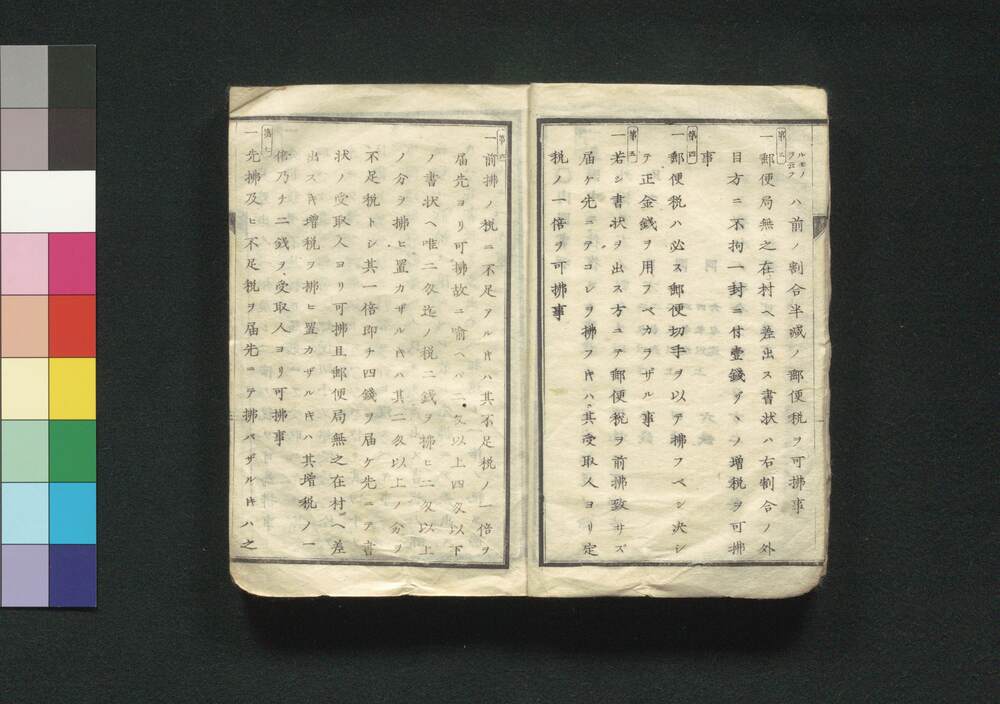 ルモノヲ云フ ハ前ノ割合半減ノ郵便税ヲ可拂事
第三
一郵便局無之在村ヘ差出ス書状ハ右割合ノ外
目方ニ不拘一封ニ付壹錢ヅヽノ増税ヲ可拂
事
第四
一郵便税ハ必ス郵便切手ヲ以テ拂フベシ決シ
テ正金錢ヲ用フベカラザル事
第五
一若シ書状ヲ出ス方ニテ郵便税ヲ前拂致サズ
届ケ先ニテコレヲ拂フ𪜈ハ其受取人ヨリ定
税ノ一倍ヲ可拂事
第六
一前拂ノ税ニ不足アル𪜈ハ其不足税ノ一倍ヲ
届先ヨリ可拂故ニ喩ヘバ二匁以上四匁以下
ノ書状ヘ唯二匁迄ノ税二錢ヲ拂ヒ二匁以上
ノ分ヲ拂ヒ置カザル𪜈ハ其二匁以上ノ分ヲ
不足税トシ其一倍即チ四錢ヲ届ケ先ニテ書
状ノ受取人ヨリ可拂且郵便局無之在村ヘ差
出スキ増税ヲ拂ヒ置カザル𪜈ハ其増税ノ一
倍乃チ二錢ヲ受取人ヨリ可拂事
第七
一先拂及ヒ不足税ヲ届先ニテ拂ハザル𪜈ハ之